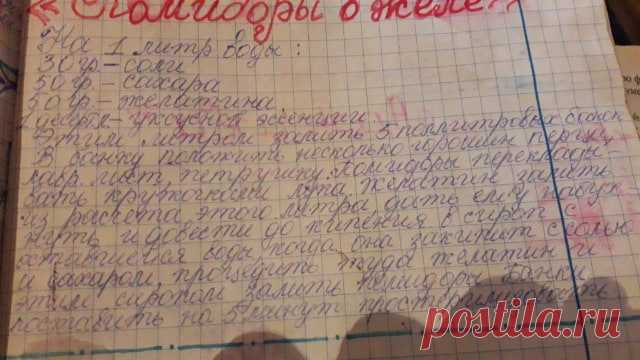 "Помидоры в желе"
На 1 литр воды:
30 гр – соли
50 гр – сахара
50 гр – желатина
1 десятя – уксусной эссенции
Этим литром залить 5 поллитровых банок
В банку положить несколько горошин перчу
лавр. лист, петрушку. Помидоры переклады-
вать кружочками лука. Желатин залить
из расчета этого литра дать ему набух
нуть и довести до кипения в сироп с
оставшейся воды когда она закипит с солью
и сахаром, процедить туда желатин и
этим сиропом залить помидоры. Банки
поставить на 5 минут простерилизовать
postila.ru